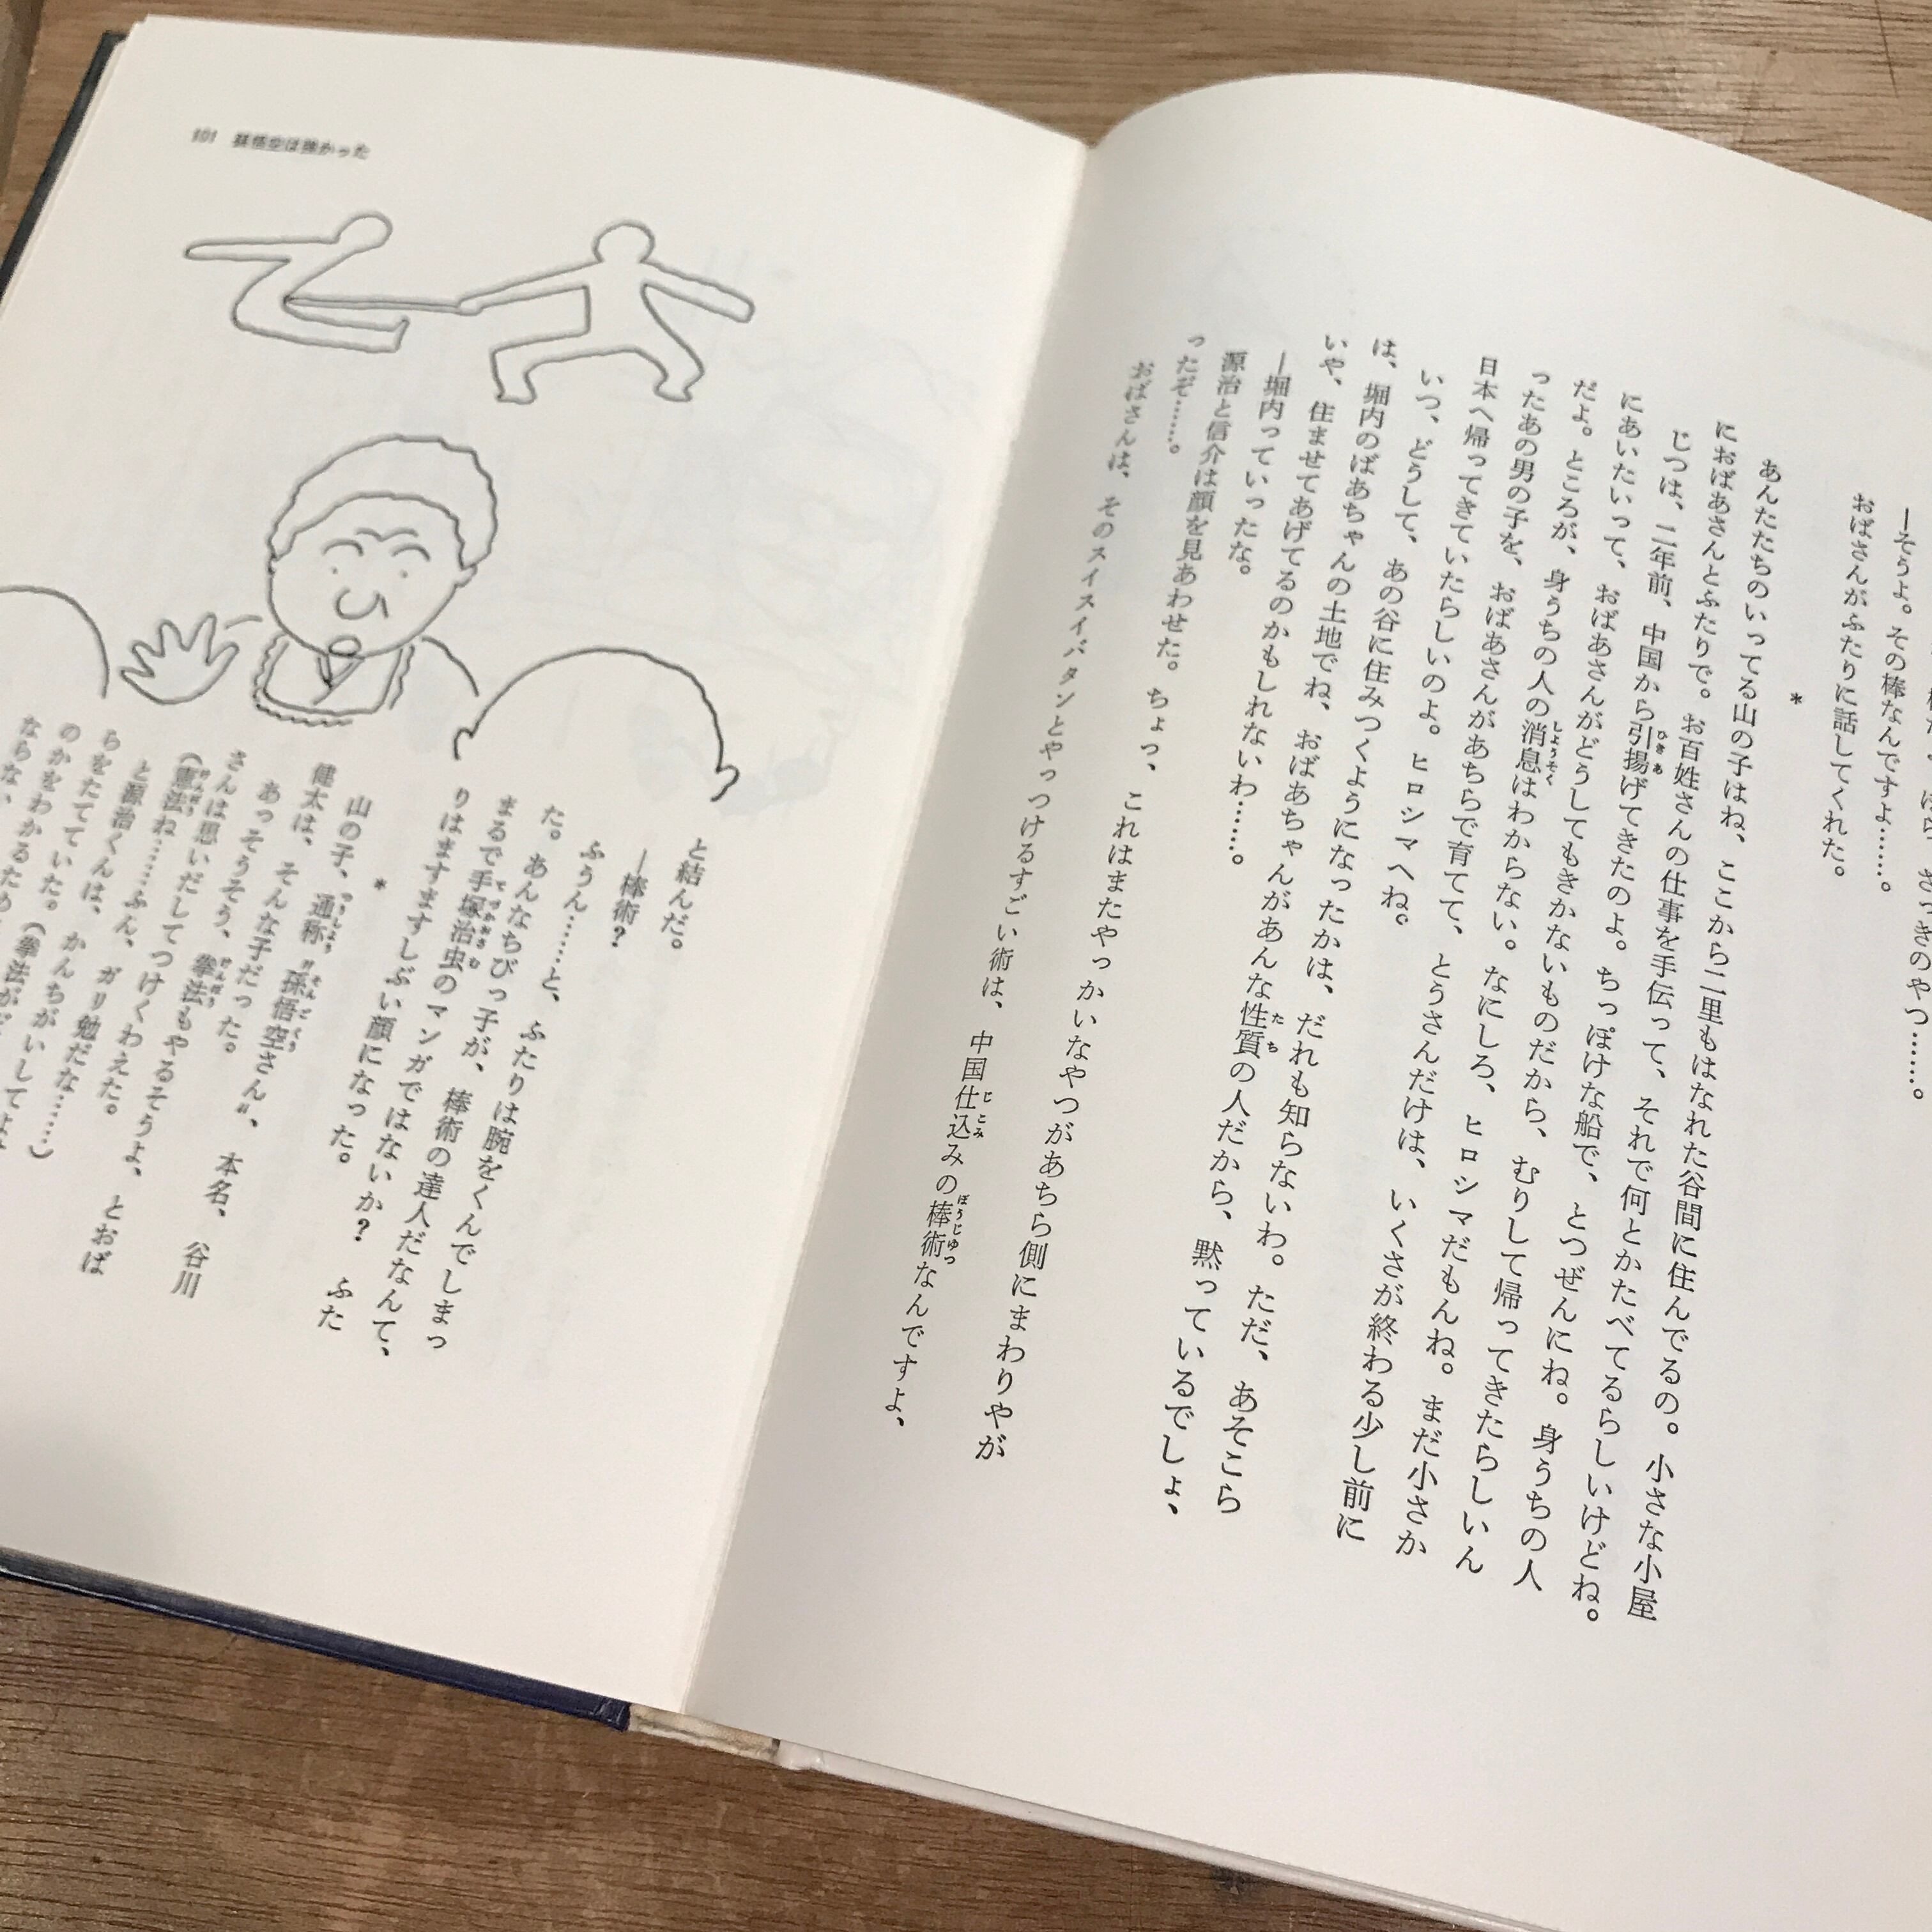 ーそうよ。その棒なんですよ……。
おばさんがふたりに話してくれた。
*
あんたたちのいってる山の子はね、ここから二里もはなれた谷間に住んでるの。小さな小屋
におばあさんとふたりで。お百姓さんの仕事を手伝って、それで何とかたべてるらしいけどね。
じつは、二年前、中国から引揚げてきたのよ。ちっぽけな船で、とつぜんにね。身うちの人
にあいたいって、おばあさんがどうしてもきかないものだから、むりして帰ってきたらしいん
だよ。ところが、身うちの人の消息はわからない。なにしろ、ヒロシマだもんね。まだ小さか
ったあの男の子を、おばあさんがあちらで育てて、とうさんだけは、いくさが終わる少し前に
日本へ帰ってきていたらしいのよ。ヒロシマへね。
いつ、どうして、あの谷に住みつくようになったかは、だれも知らないわ。ただ、あそこら
は、堀内のばあちゃんの土地でね、おばあちゃんがあんな性質の人だから、黙っているでしょ、
いや、住ませてあげてるのかもしれないわ……。
ー堀内っていったな。
源治と信介は顔を見あわせた。ちょっ、これはまたやっかいなやつがあちら側にまわりやが
ったぞ……。
おばさんは、そのスイスイバタンとやっつけるすごい術は、中国仕込みの棒術なんですよ、
101 孫悟空は強かった
と結んだ。
ー棒術？
ふうん……と、ふたりは腕をくんでしまっ
た。あんなちびっ子が、棒術の達人だなんて、
まるで手塚治虫のマンガではないか？ ふた
りはますますしぶい顔になった。
*
山の子、通称〝孫悟空さん〟、本名、谷川
健太は、そんな子だった。
あっそうそう、拳法もやるそうよ、とおば
さんは思いだしてつけくわえた。
(憲法ね……ふん、ガリ勉だな……)
と源治くんは、かんちがいしてよ
らをたてていた。(拳法が
のかをわかるため
ならない